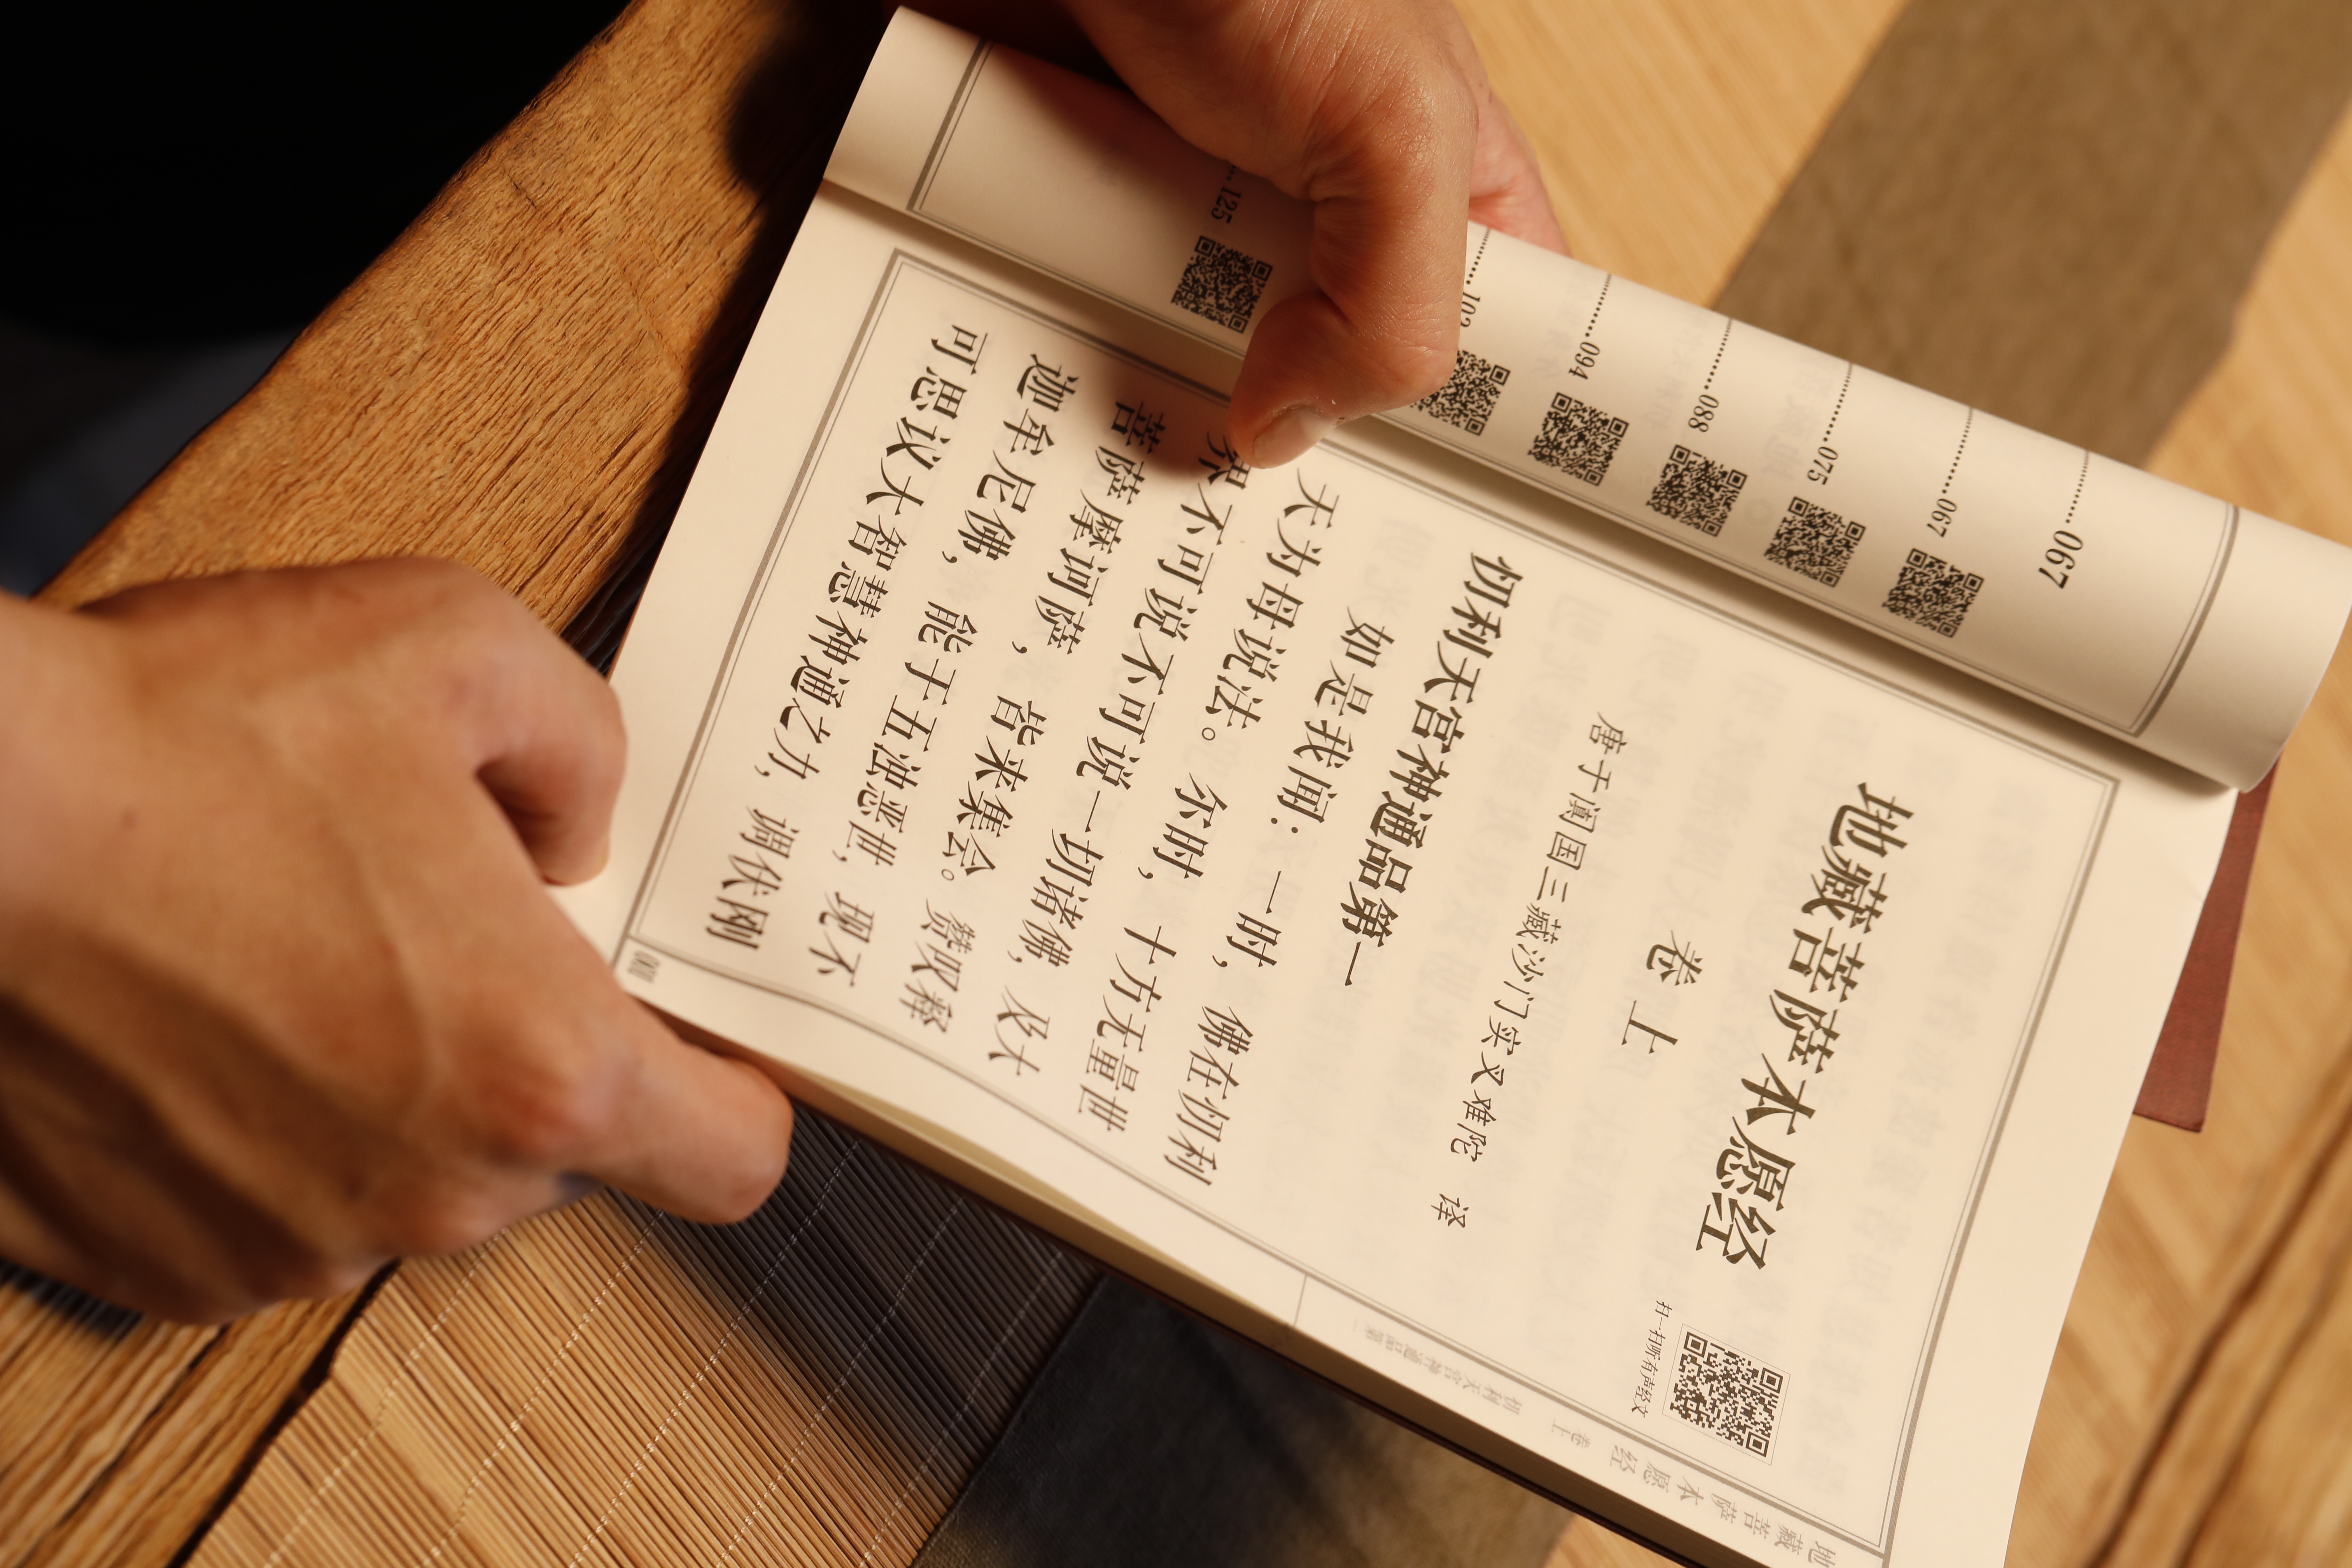 地藏菩萨本愿经
卷上
唐于阗国三藏沙门实叉难陀 译
忉利天宫神通品第一
如是我闻：一时，佛在忉利
天为母说法。尔时，十方无量世
界不可说不可说一切诸佛，及大
菩萨摩诃萨，皆来集会。赞叹释
迦牟尼佛，能于五浊恶世，现不
可思议大智慧神通之力，调伏刚
扫一扫听有声经文
地藏菩萨本愿经 卷上 忉利天宫神通品第一
001
067
067
075
088
094
102
125